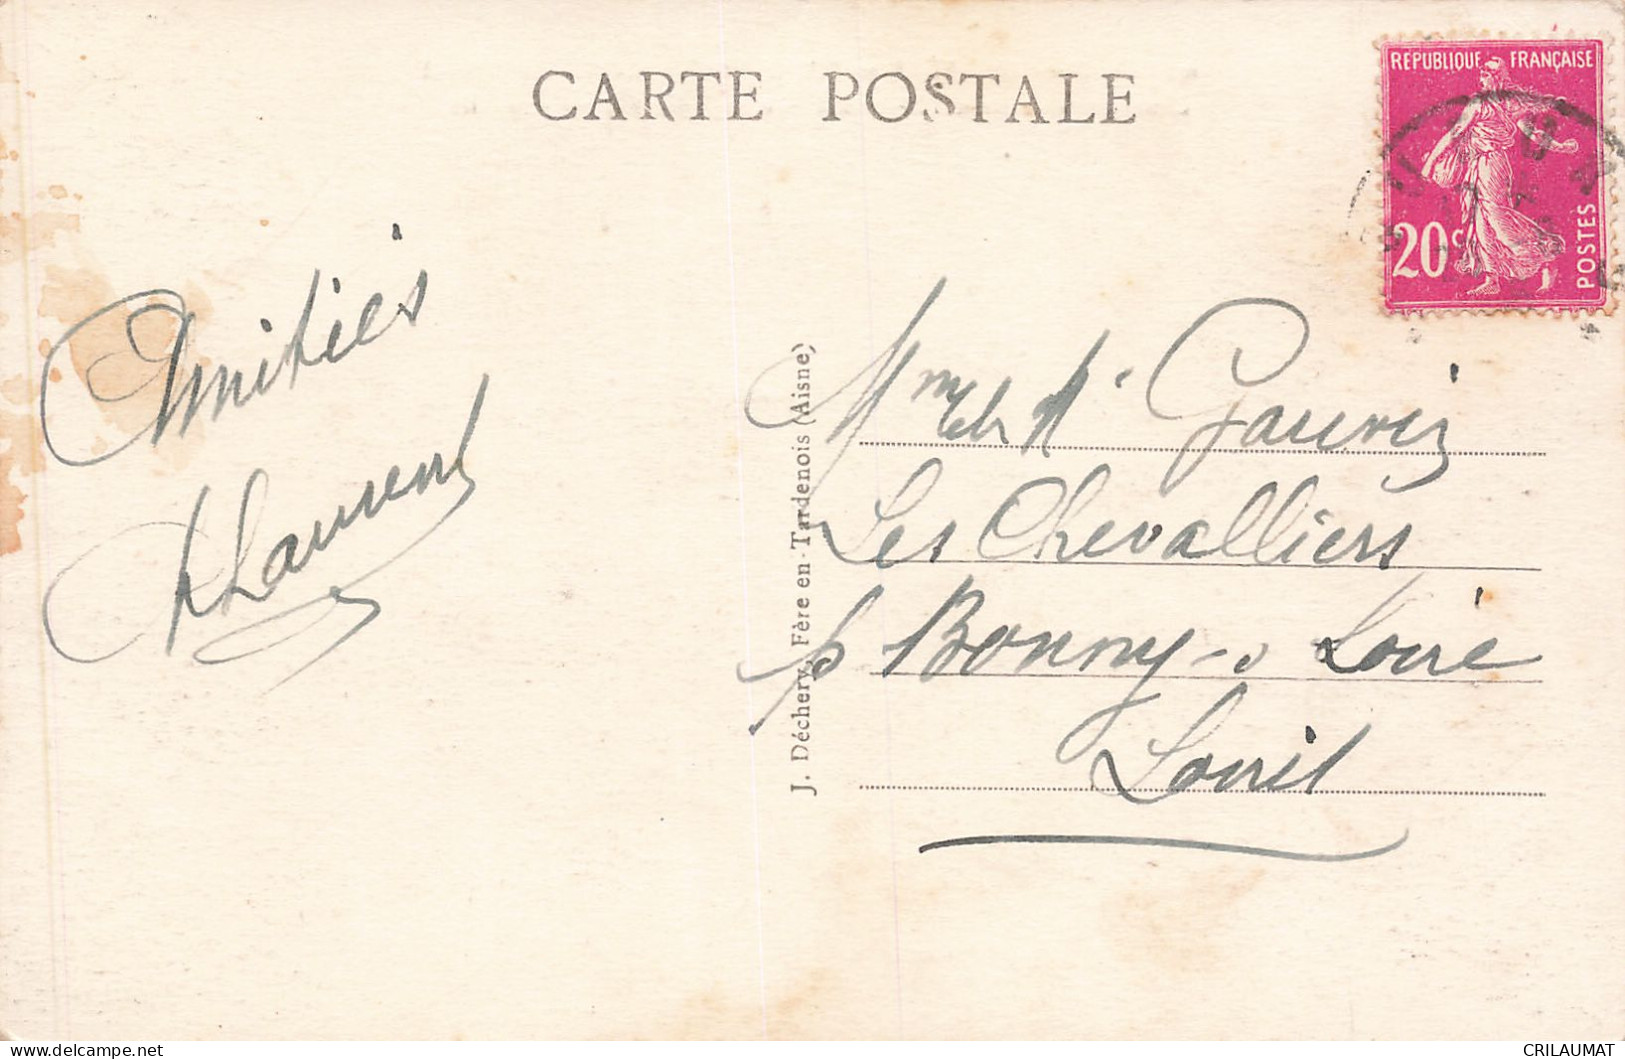 CARTE POSTALE
REPUBLIQUE FRANÇAISE
20c
POSTES
Amitiés
Laurent
J. Déchery, Fère en Tardenois (Aisne)
Gauvin
Les Chevalliers
p Bonny-s Loire
Loiret
www.delcampe.net
CRILAUMAT